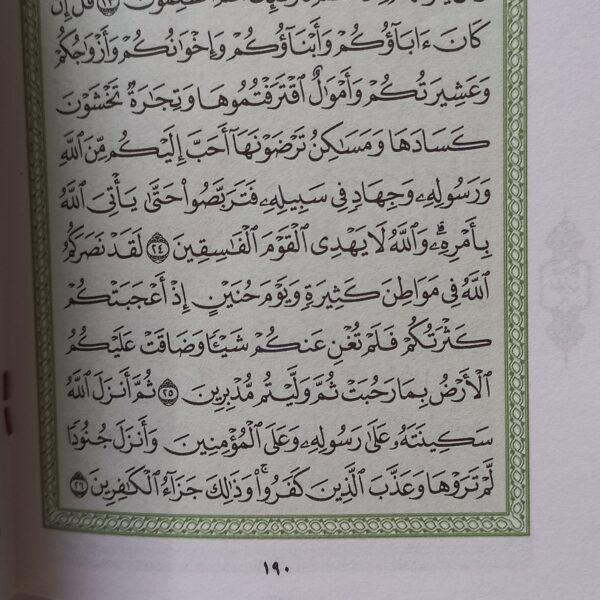 قُلْ إِن
كَانَ ءَابَآؤُكُمْ وَأَبْنَآؤُكُمْ وَإِخْوَٰنُكُمْ وَأَزْوَٰجُكُمْ
وَعَشِيرَتُكُمْ وَأَمْوَٰلٌ ٱقْتَرَفْتُمُوهَا وَتِجَٰرَةٌ تَخْشَوْنَ
كَسَادَهَا وَمَسَٰكِنُ تَرْضَوْنَهَآ أَحَبَّ إِلَيْكُم مِّنَ ٱللَّهِ
وَرَسُولِهِۦ وَجِهَادٍ فِى سَبِيلِهِۦ فَتَرَبَّصُوا۟ حَتَّىٰ يَأْتِىَ ٱللَّهُ
بِأَمْرِهِۦ ۗ وَٱللَّهُ لَا يَهْدِى ٱلْقَوْمَ ٱلْفَٰسِقِينَ ٢٤ لَقَدْ نَصَرَكُمُ
ٱللَّهُ فِى مَوَاطِنَ كَثِيرَةٍ وَيَوْمَ حُنَيْنٍ إِذْ أَعْجَبَتْكُمْ
كَثْرَتُكُمْ فَلَمْ تُغْنِ عَنكُمْ شَيْـًٔا وَضَاقَتْ عَلَيْكُمُ
ٱلْأَرْضُ بِمَا رَحُبَتْ ثُمَّ وَلَّيْتُم مُّدْبِرِينَ ٢٥ ثُمَّ أَنزَلَ ٱللَّهُ
سَكِينَتَهُۥ عَلَىٰ رَسُولِهِۦ وَعَلَى ٱلْمُؤْمِنِينَ وَأَنزَلَ جُنُودًا
لَّمْ تَرَوْهَا وَعَذَّبَ ٱلَّذِينَ كَفَرُوا۟ ۚ وَذَٰلِكَ جَزَآءُ ٱلْكَٰفِرِينَ ٢٦
١٩٠